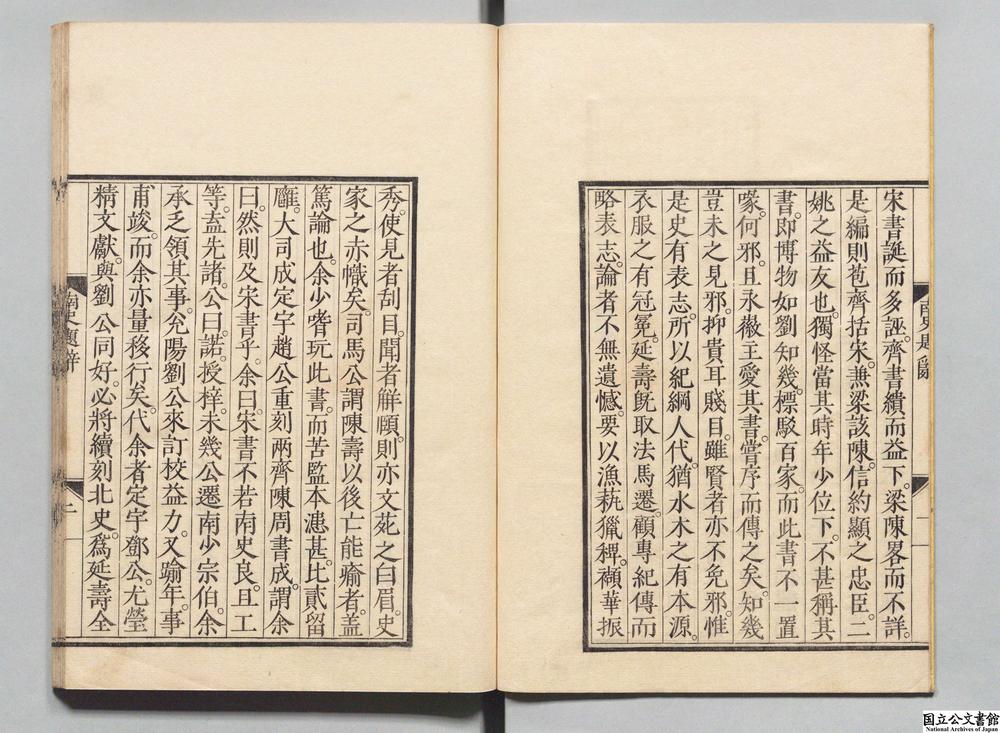 宋書誕而多誣。齊書纉而益下。梁陳畧而不詳。
是編則苞齊括宋。兼梁該陳。信約顯之忠臣。二
姚之益友也。獨怪當其時年少位下。不甚稱其
書。即博物如劉知幾。標駁百家。而此書不一置
喙。何邪。且永徽主愛其書。嘗序而傳之矣。知幾
豈未之見邪。抑貴耳賤目。雖賢者亦不免邪。惟
是史有表志。所以紀綱人代。猶水木之有本源。
衣服之有冠冕。延壽旣取法馬遷。顧專紀傳而
略表志。論者不無遺憾。要以漁秇獵稗。襭華振
南史題辭
一
秀。使見者刮目。聞者解頤。則亦文苑之白眉。史
家之赤幟矣。司馬公謂陳壽以後亡能瑜者。盖
篤論也。余少嗜玩此書。而苦監本漶甚。比貳留
廱。大司成定宇趙公重刻兩齊陳周書成。謂余
曰。然則及宋書乎。余曰。宋書不若南史良。且工
等。盍先諸。公曰。諾。授梓。未幾公遷南少宗伯。余
承乏領其事。兖陽劉公來訂校益力。又踰年。事
甫竣。而余亦量移行矣。代余者定宇鄧公。尤瑩
精文獻。與劉公同好。必將續刻北史。爲延壽全
南史題辭
二
国立公文書館
National Archives of Japan